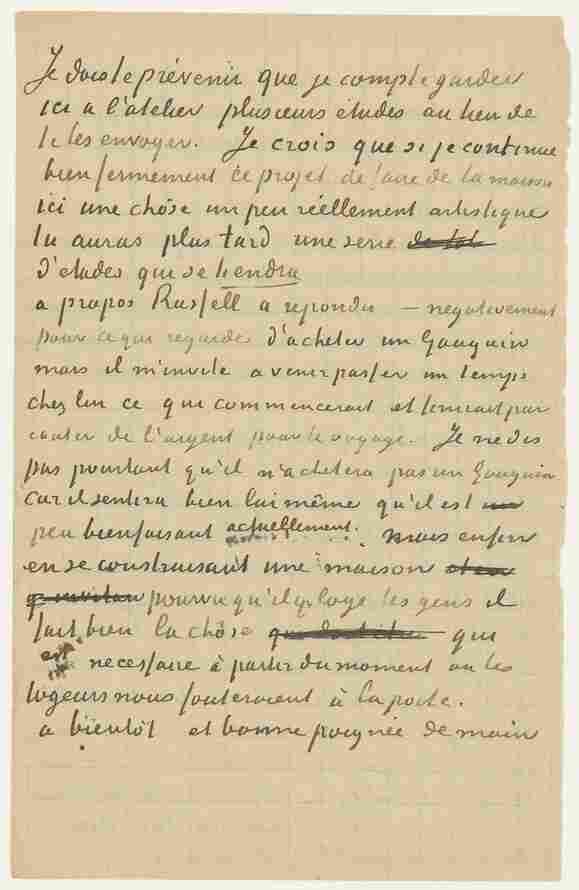 Je dois te prévenir que je compte garder
ici a l'atelier plusieurs études au lieu de
te les envoyer. Je crois que si je continue
bien fermement ce projet de faire de la maison
ici une chôse un peu réellement artistique
tu auras plus tard une serie
d'etudes qui se tiendra
a propos Russell a repondu — negativement
pour ce qui regarde d'acheter un Gauguin
mais il m'invite a venir passer un temps
chez lui ce qui commencerait et finirait par
couter de l'argent pour le voyage. Je ne dis
pas pourtant qu'il n'achetera pas un Gauguin
car il sentira bien lui même qu'il est
peu bienfaisant actuellement. mais enfin
en se construisant une maison
pourvu qu'il y loge les gens il
fait bien la chôse qui
est necessaire à partir du moment ou les
logeurs nous fouteraient à la porte.
a bientôt et bonne poignée de main